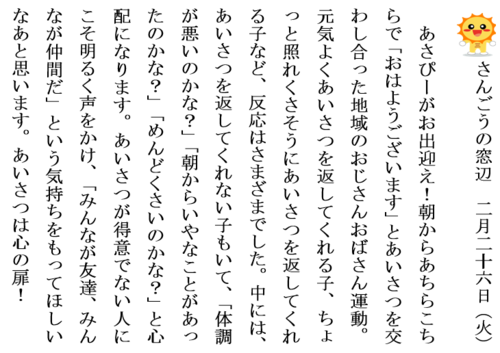 さんごうの窓辺　二月二十六日（火）
あさぴーがお出迎え！朝からあちらこち
らで「おはようございます」とあいさつを交
わし合った地域のおじさんおばさん運動。
元気よくあいさつを返してくれる子、ちょ
っと照れくさそうにあいさつを返してくれ
る子など、反応はさまざまでした。中には、
あいさつを返してくれない子もいて、「体調
が悪いのかな？」「朝からいやなことがあっ
たのかな？」「めんどくさいのかな？」と心
配になります。あいさつが得意でない人に
こそ明るく声をかけ、「みんなが友達、みん
なが仲間だ」という気持ちをもってほしい
なあと思います。あいさつは心の扉！